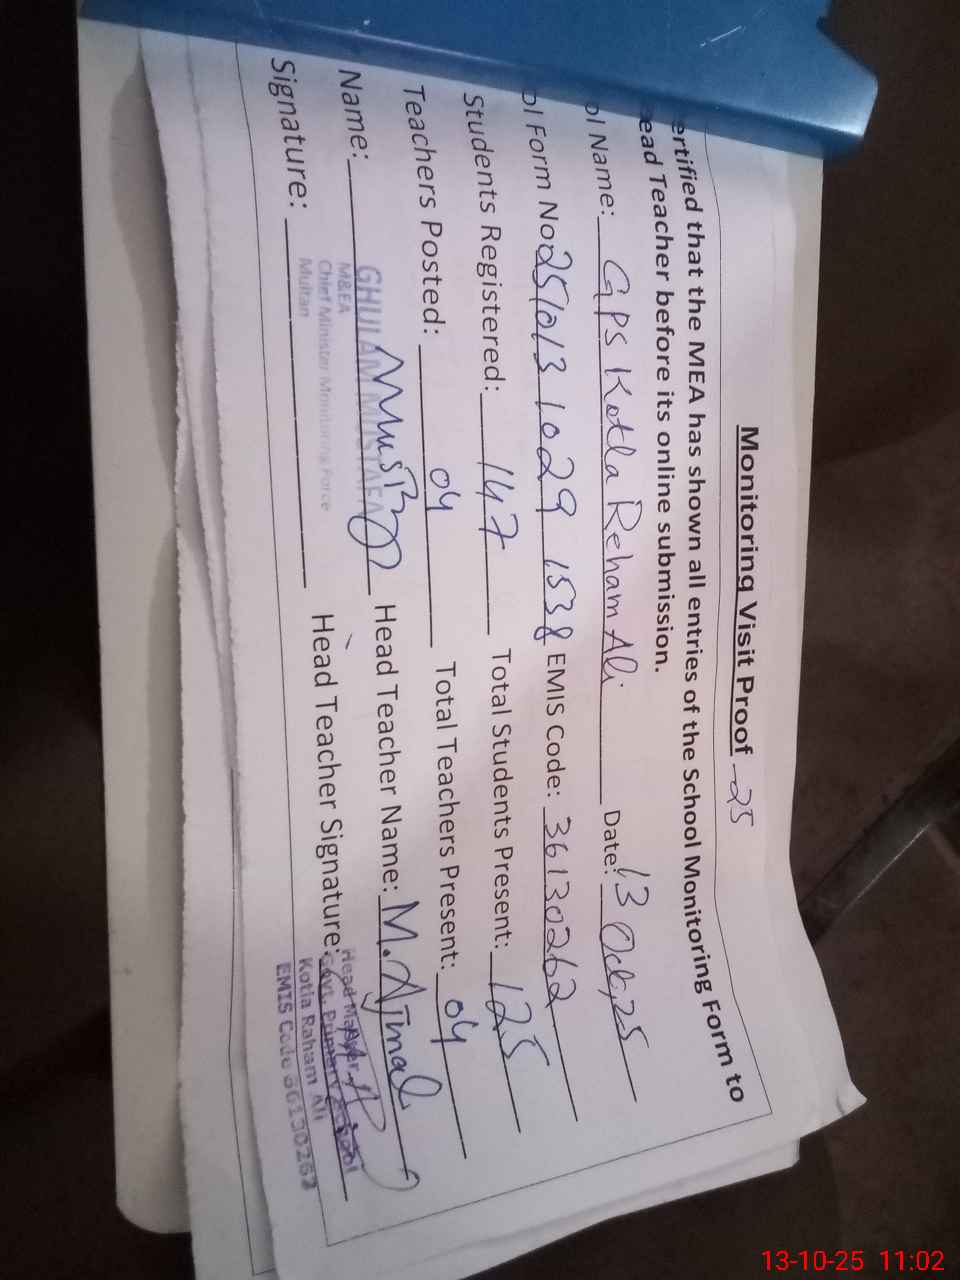 Monitoring Visit Proof -25
ertified that the MEA has shown all entries of the School Monitoring Form to
ead Teacher before its online submission.
ol Name: GPS Kotla Reham Ali Date: 13 Oct, 25
ol Form No 251013 1029 1538 EMIS Code: 36130262
Students Registered: 147 Total Students Present: 125
Teachers Posted: 04 Total Teachers Present: 04
Name: Head Teacher Name: M. Ajmal
GHULAM MUSTAFA
M&EA
Chief Minister Monitoring Force
Multan
Signature: Head Teacher Signature:
Head Master
Govt. Primary School
Kotla Raham Ali
EMIS Code 36130262
13-10-25 11:02